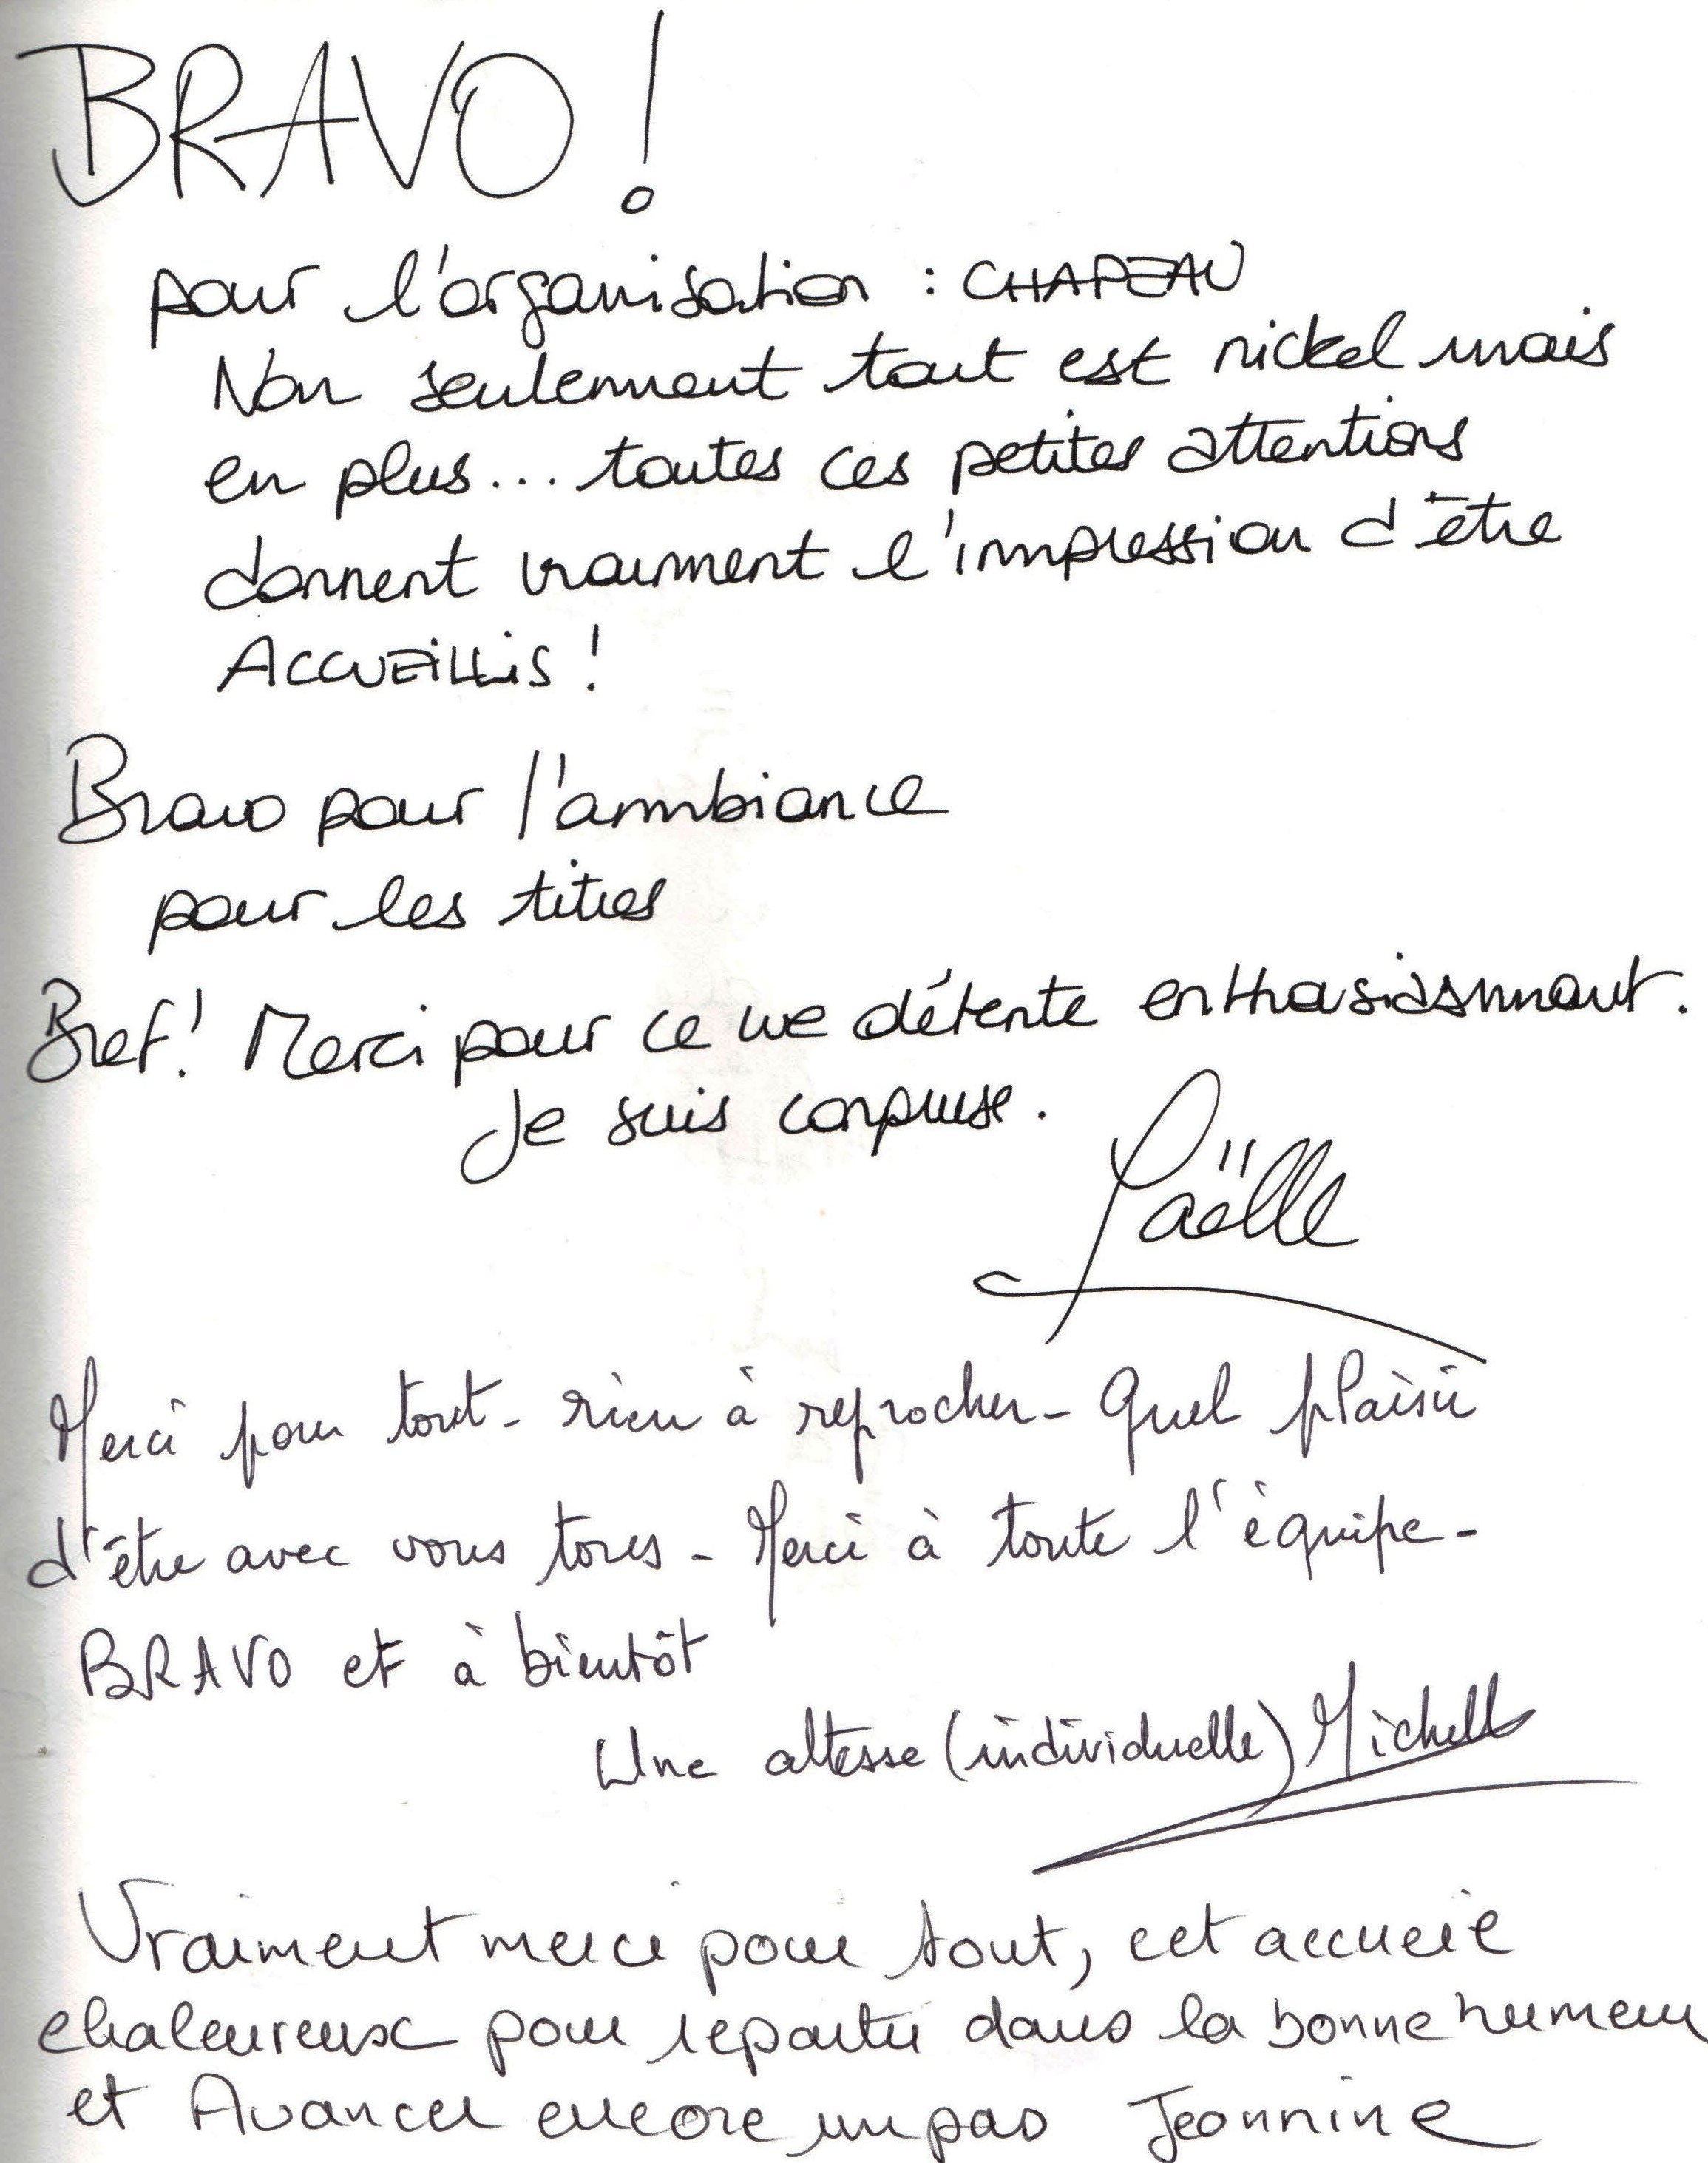 BRAVO !
pour l'organisation : CHAPEAU
Non seulement tout est nickel mais
en plus... toutes ces petites attentions
donnent vraiment l'impression d'être
ACCUEILLIS !
Bravo pour l'ambiance
pour les titres
Bref! Merci pour ce we détente enthousiasmant.
Je suis conquise.
Gaëlle
Merci pour tout - rien à reprocher - Quel plaisir
d'être avec vous tous - Merci à toute l'équipe -
BRAVO et à bientôt
Une altesse (individuelle) Michelle
Vraiment merci pour tout, cet accueil
chaleureux pour repartir dans la bonne humeur
et Avancer encore un pas Jeannine